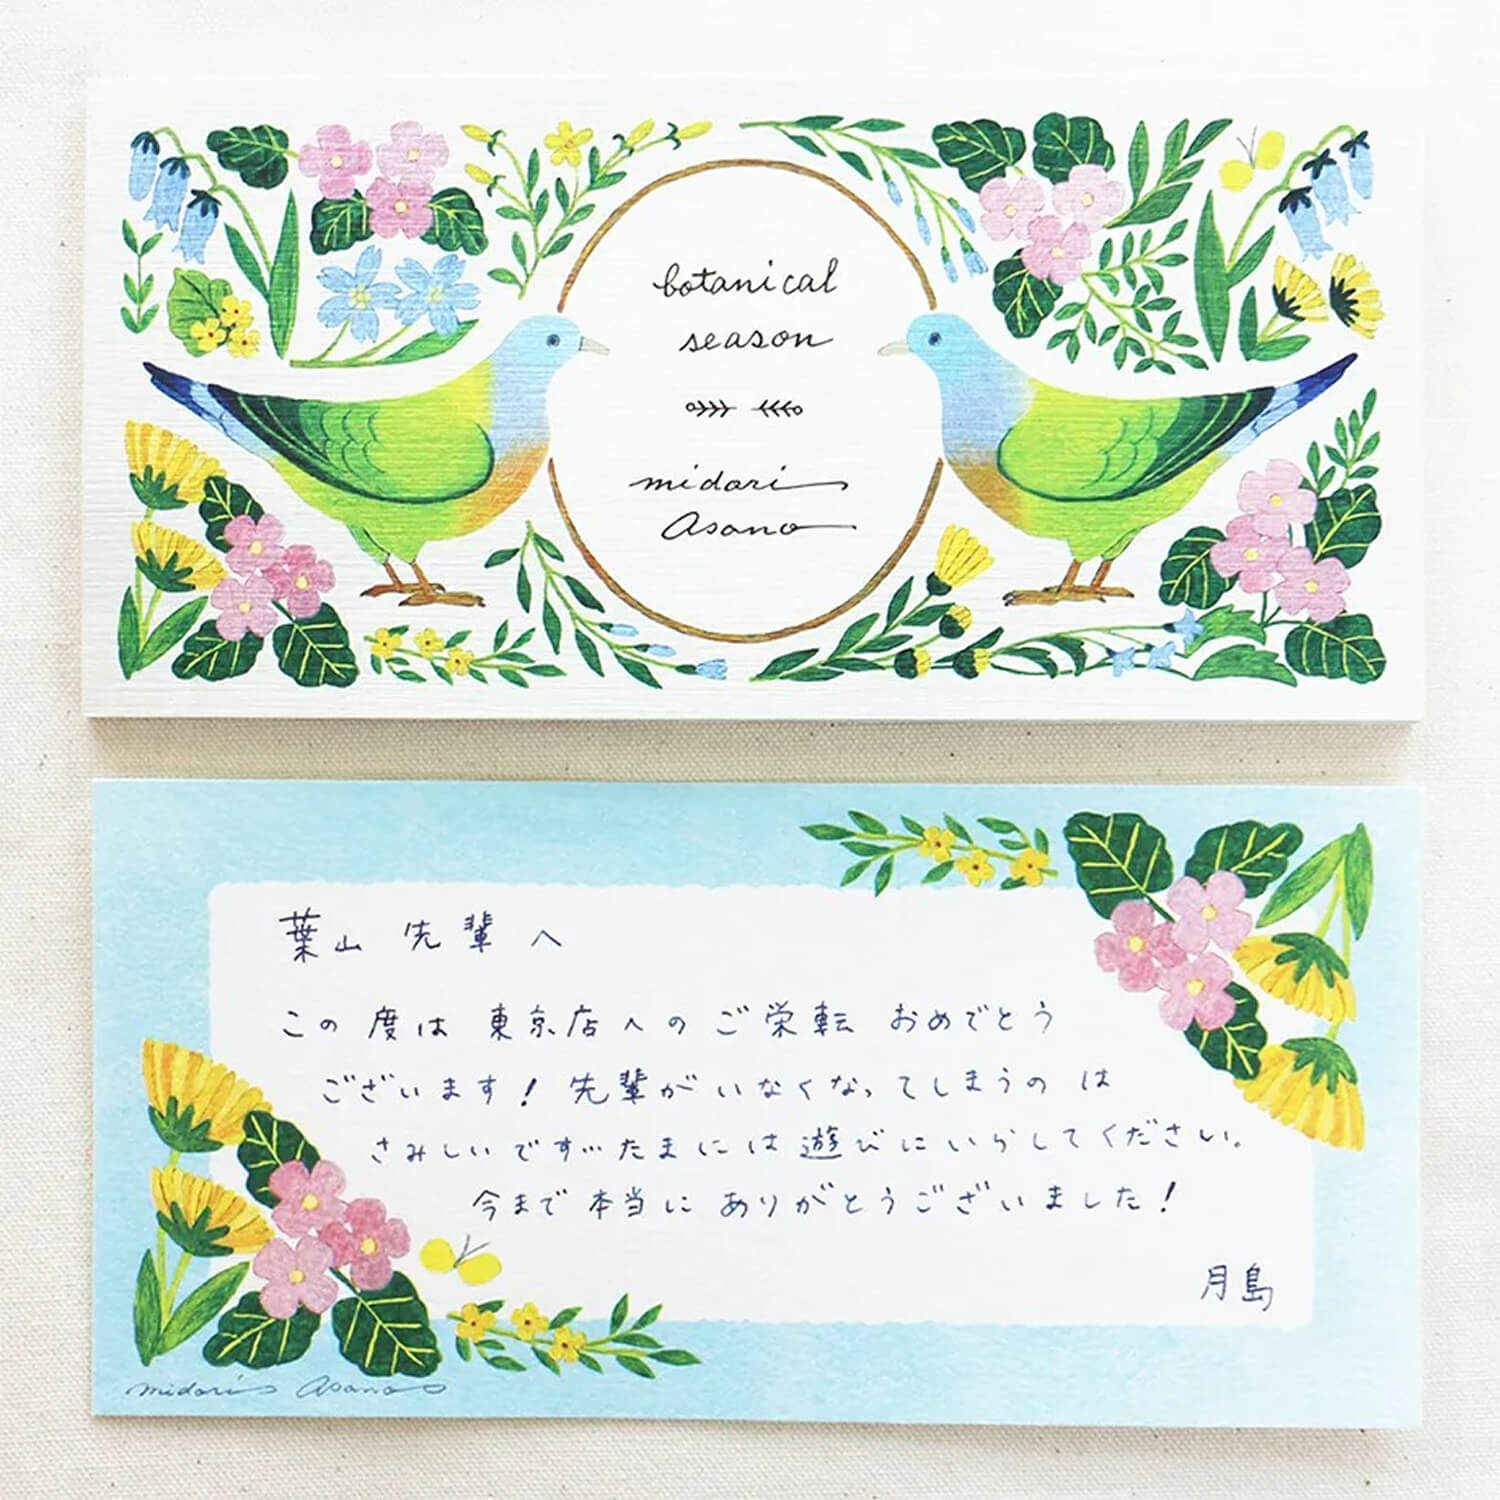 botanical
season
midori
asano
葉山 先輩へ
この度は 東京店へのご栄転 おめでとう
ございます! 先輩がいなくなってしまうのは
さみしいです… たまには遊びにいらしてください。
今まで本当に ありがとうございました!
月島
midori asano